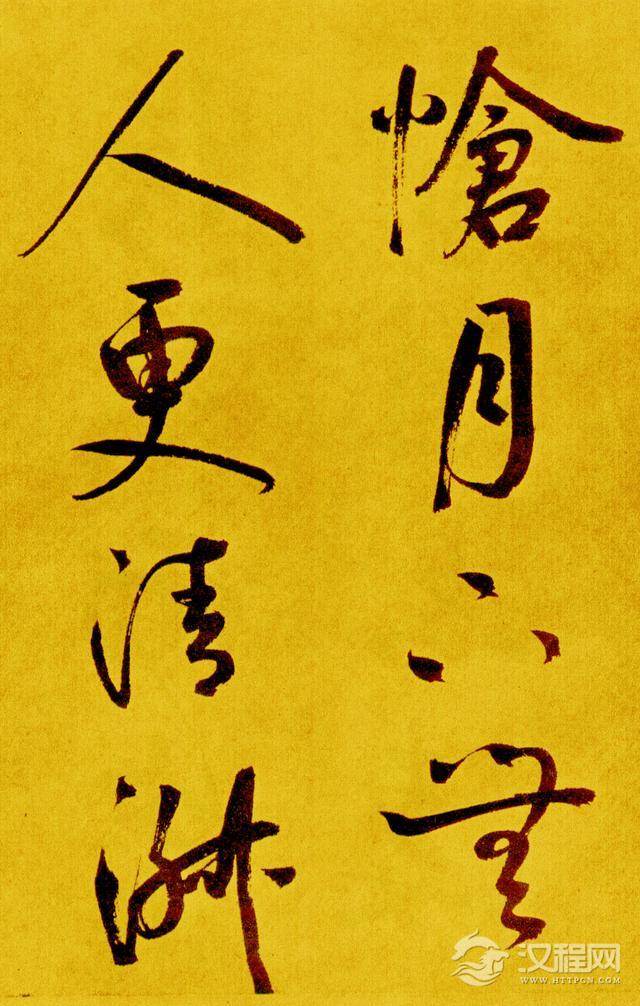 愴月下無
人更清淑
汉程网
WWW.HTTPCN.COM